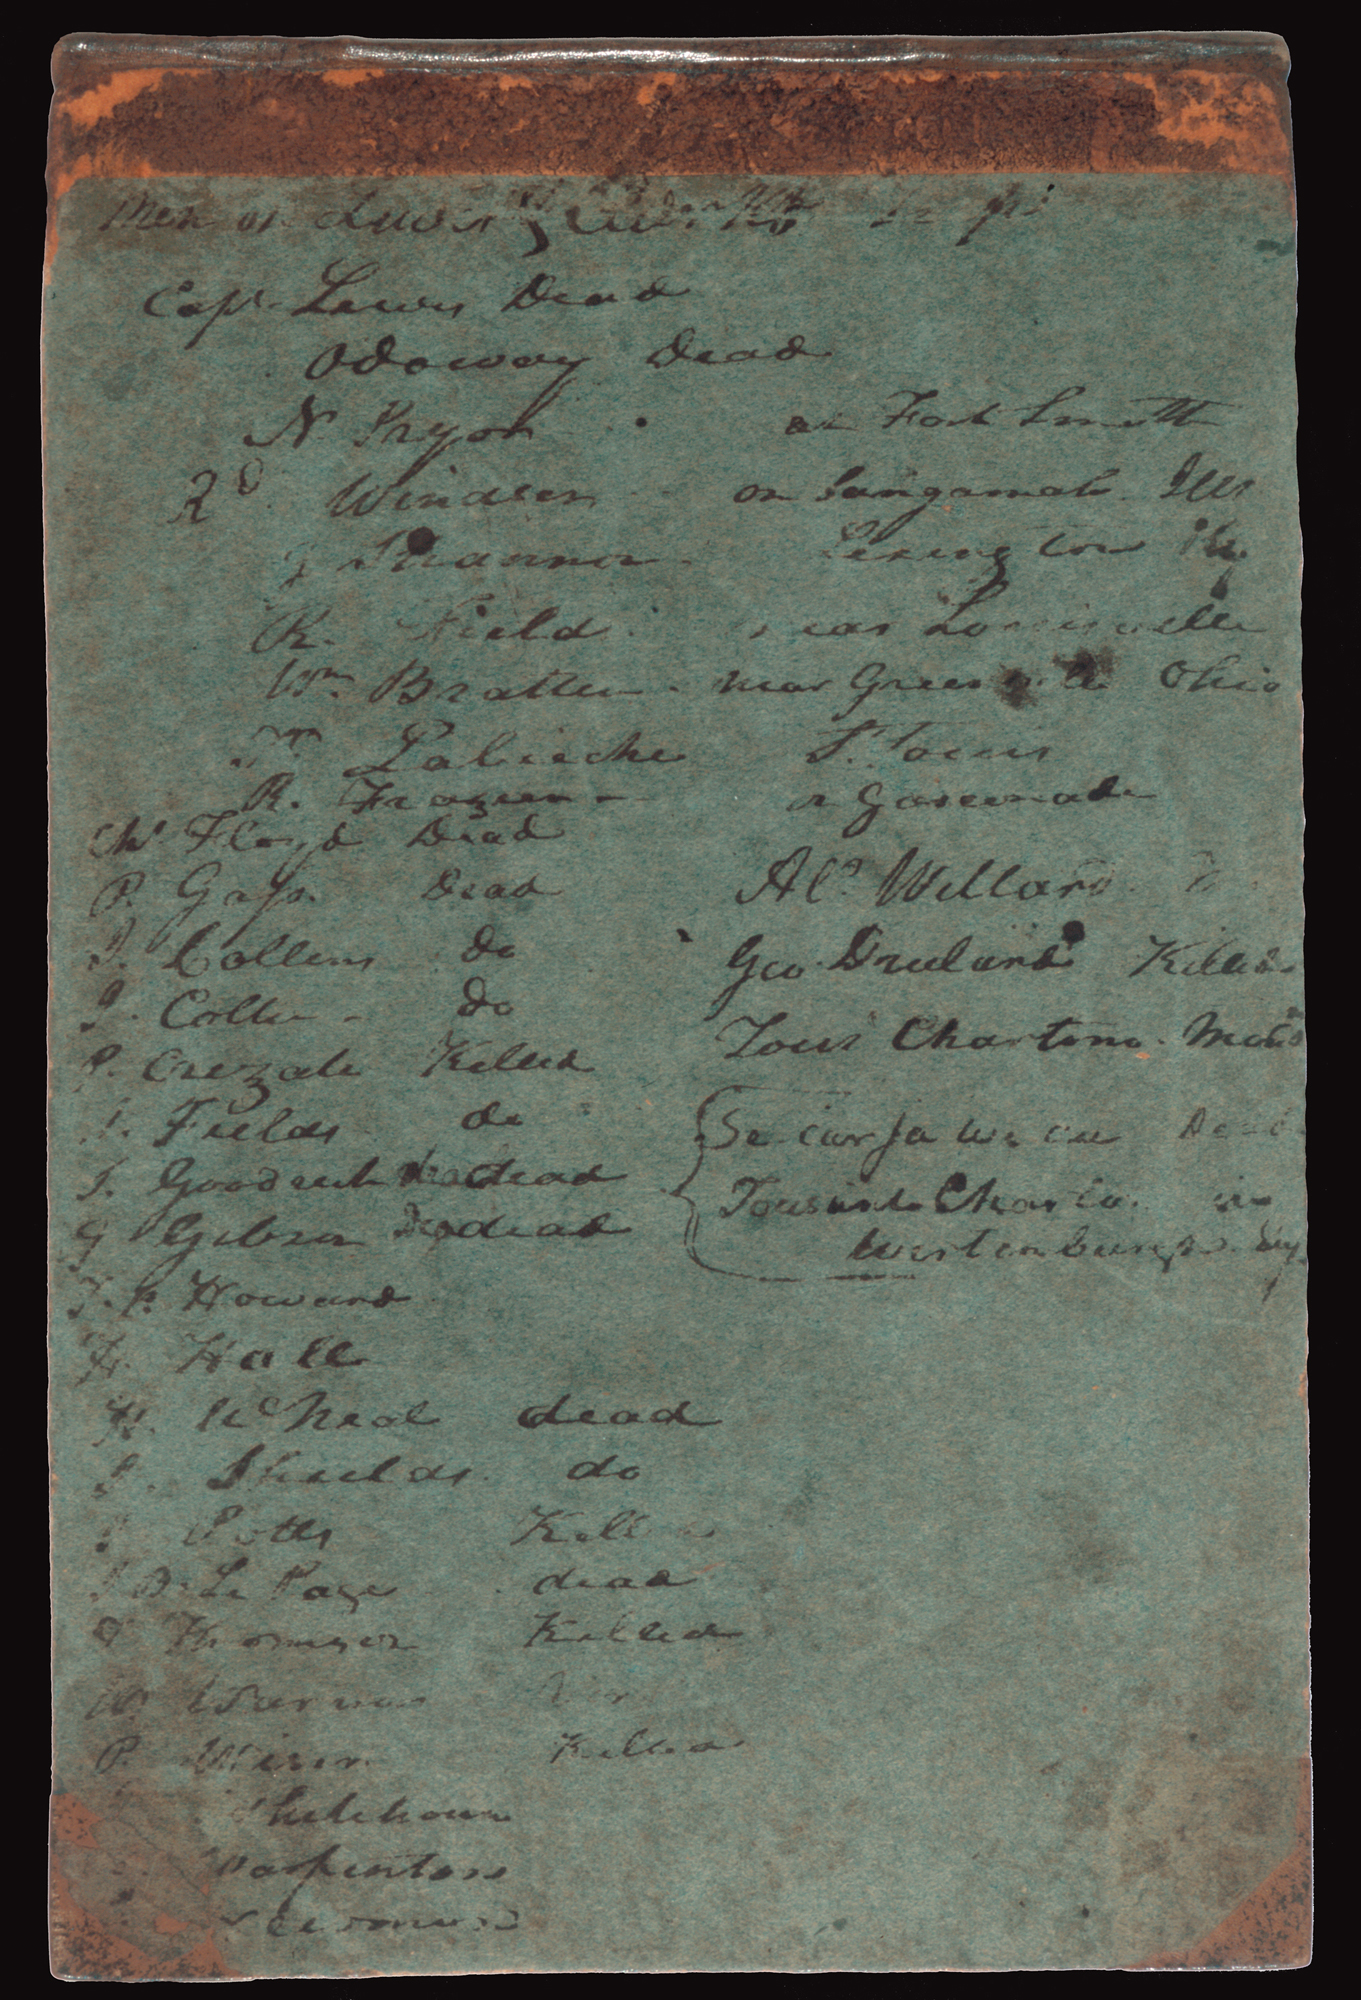 Men on Lewis & Clarks Trip
Capt. Lewis Dead
Odoway Dead
N. Pryor at Fort Smith
Rd Windser on Sangamah Ills
G Shannon Lexington Ky
R. Field near Louisville
Wm Bratten near Greenville Ohio
Labieche St. Louis
R. Frazier on Gasconade
Ch. Floyd Dead
P. Gass Dead
J. Collins do
J. Colter do
P. Cruzate Killed
J. Fields do
S. Goodrich dead
G Gibson dead
T. P. Howard
H. Hall
H. McNeal dead
J. Shields do
J Potts Killed
J B Le Page dead
J Thomson Killed
Wm. Werner
P. Wiser Killed
Whitehouse
Warpenton
Newman
Alr. Willard
Geo Drulard Killed
Tous Charbono
Se car ja we au Dead
Tousant Charbo in
Wertenburgh